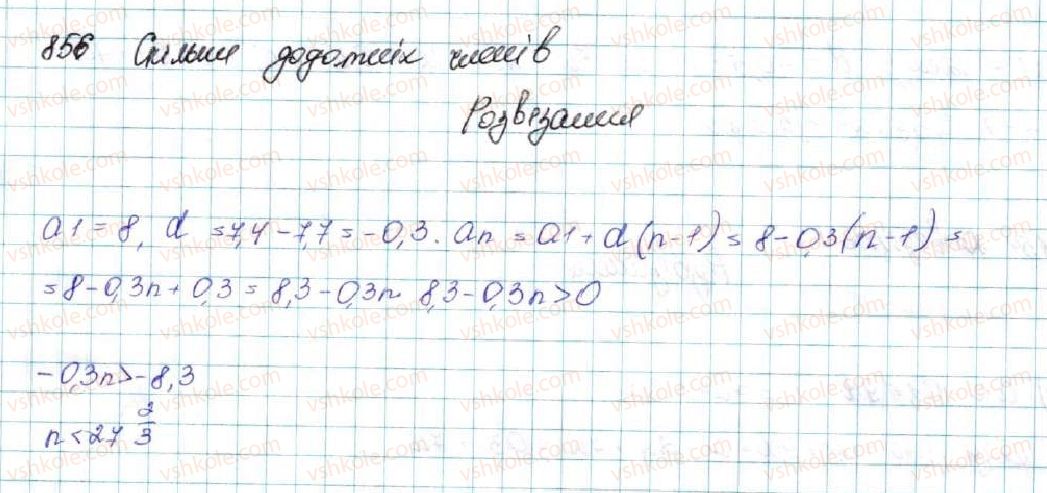 856 Скільки додатніх членів
Розвязання
a1 = 8, d = 7,4 - 7,7 = -0,3. an = a1 + d(n-1) = 8 - 0,3(n-1) =
= 8 - 0,3n + 0,3 = 8,3 - 0,3n. 8,3 - 0,3n > 0
-0,3n > -8,3
n < 27 2/3